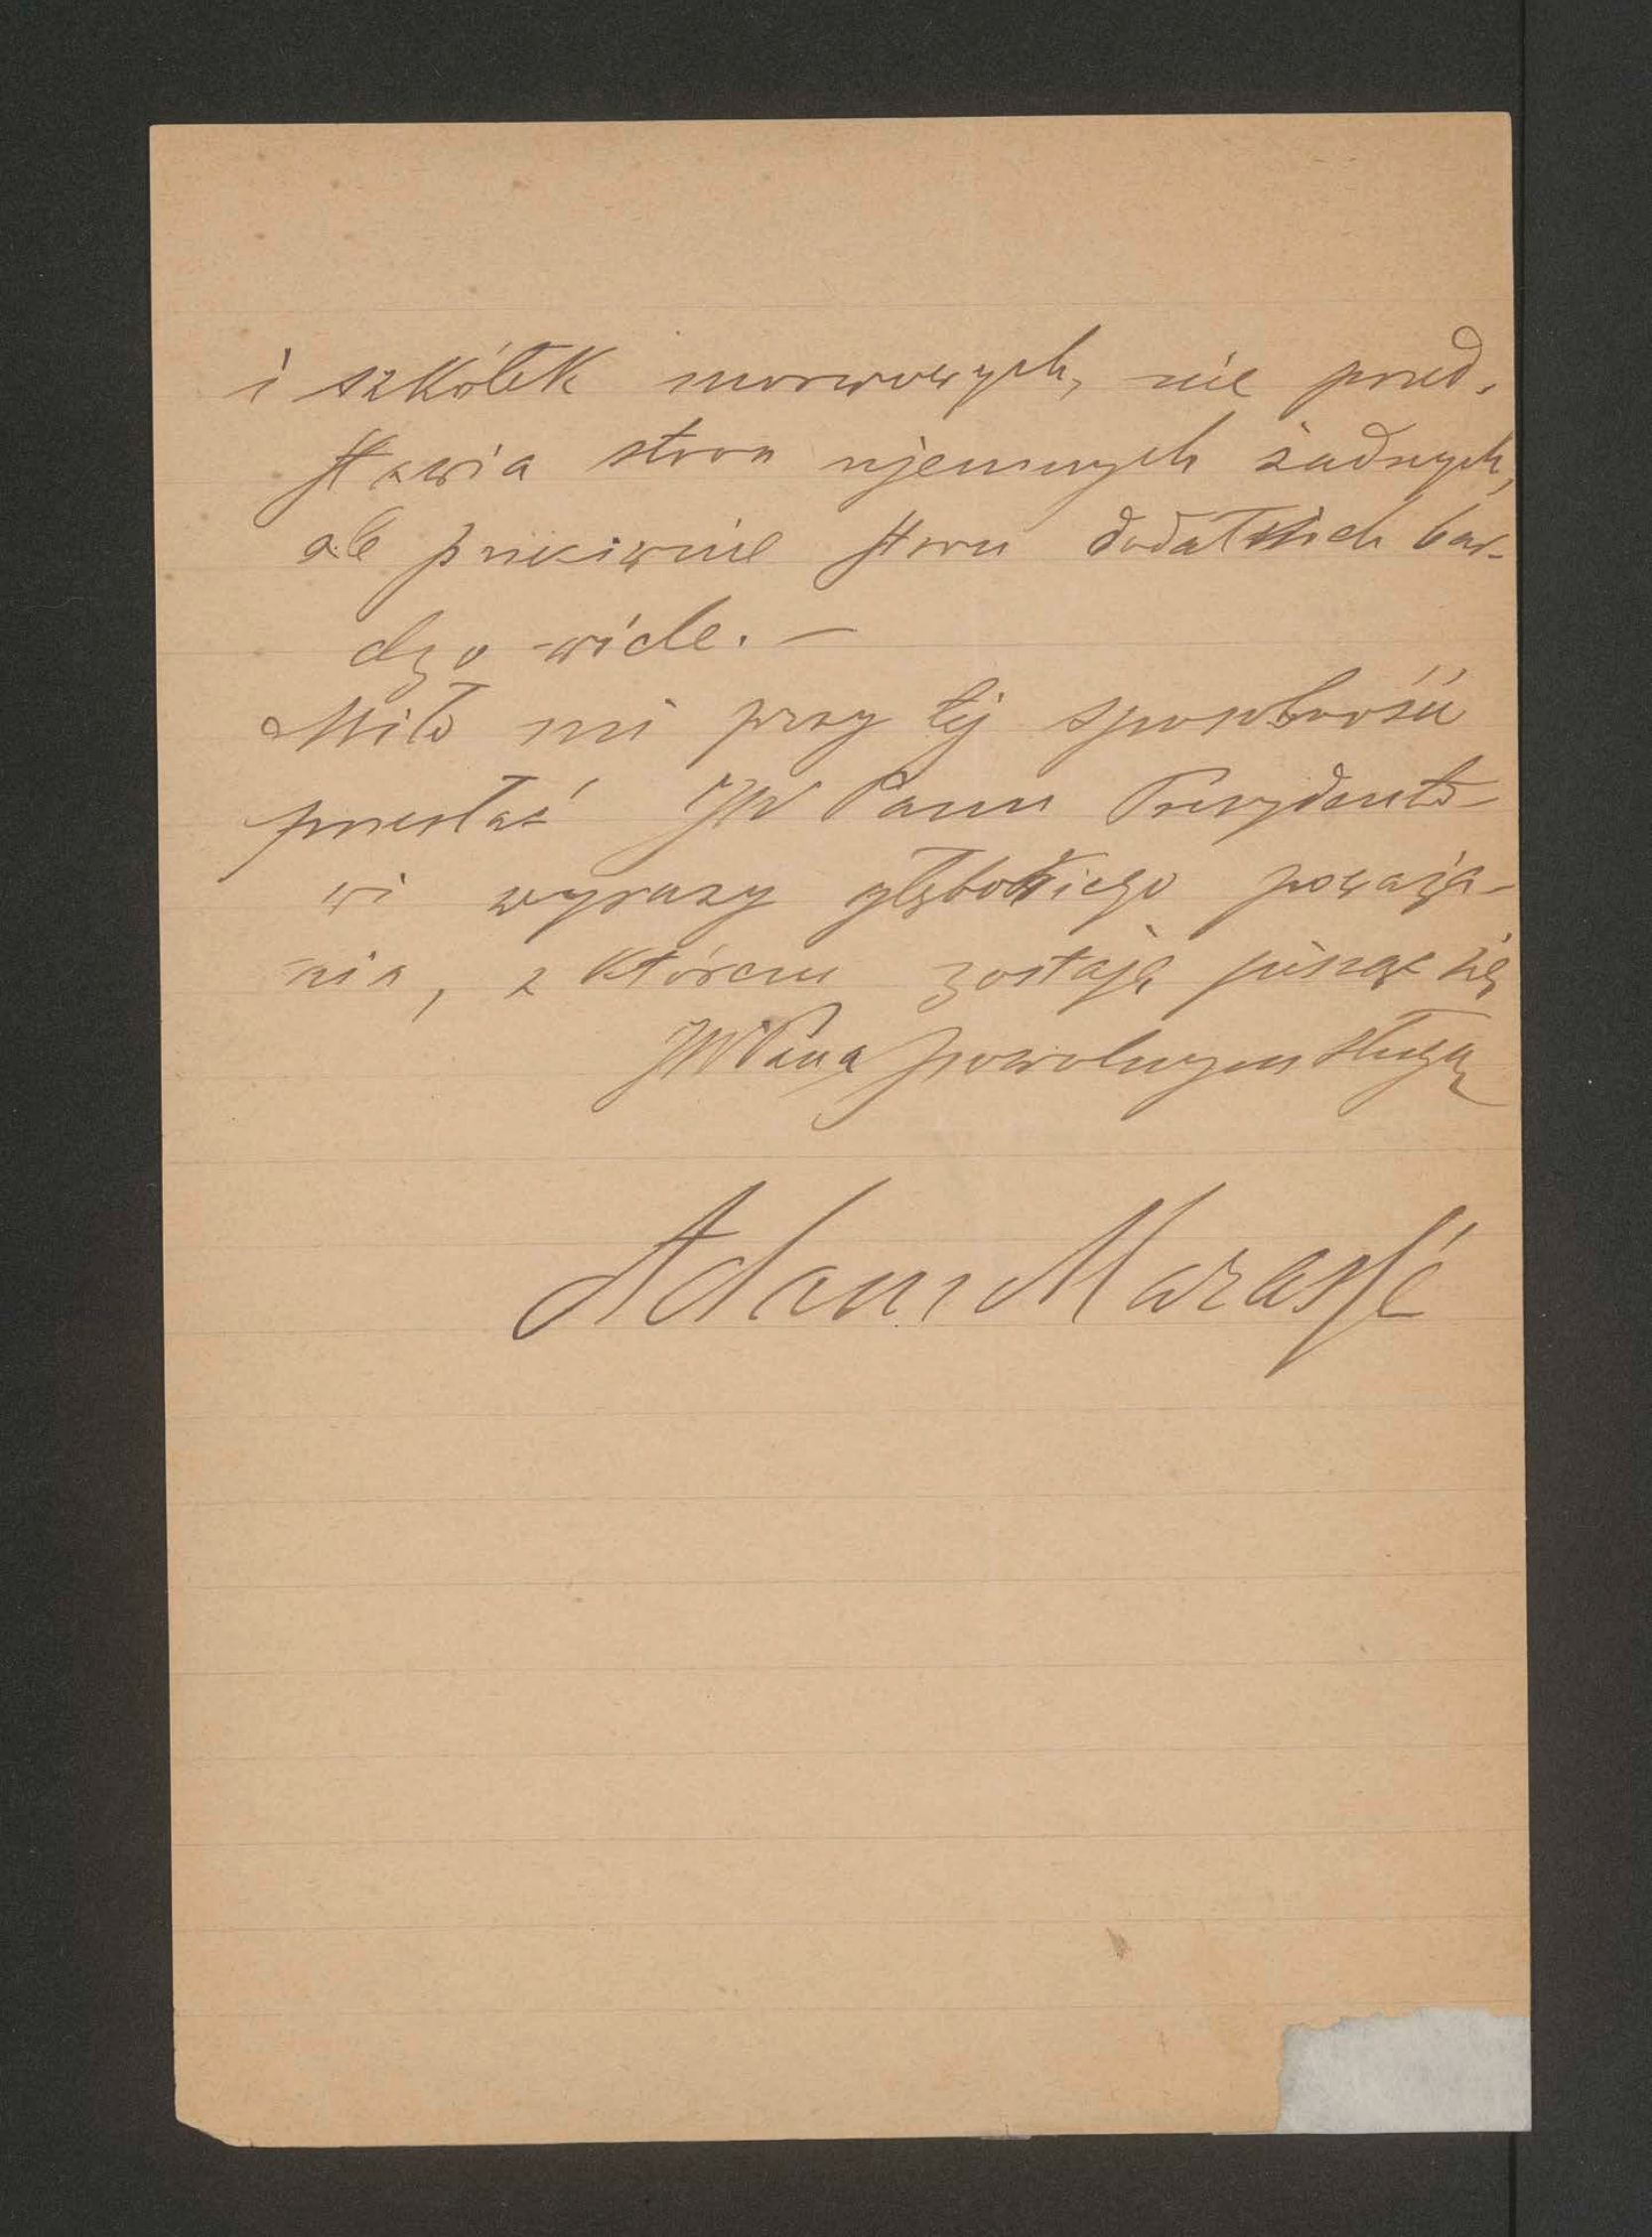 i szkółek morwowych, nie przed-
stawia stron ujemnych żadnych,
ale przeciwnie stron dodatnich bar-
dzo wiele. —
Miło mi przy tej sposobności
przesłać JW Panu Prezydento-
wi wyrazy głębokiego poważa-
nia, z którem zostaję pisząc się
JWPana powolnym sługą
Adam Marassé